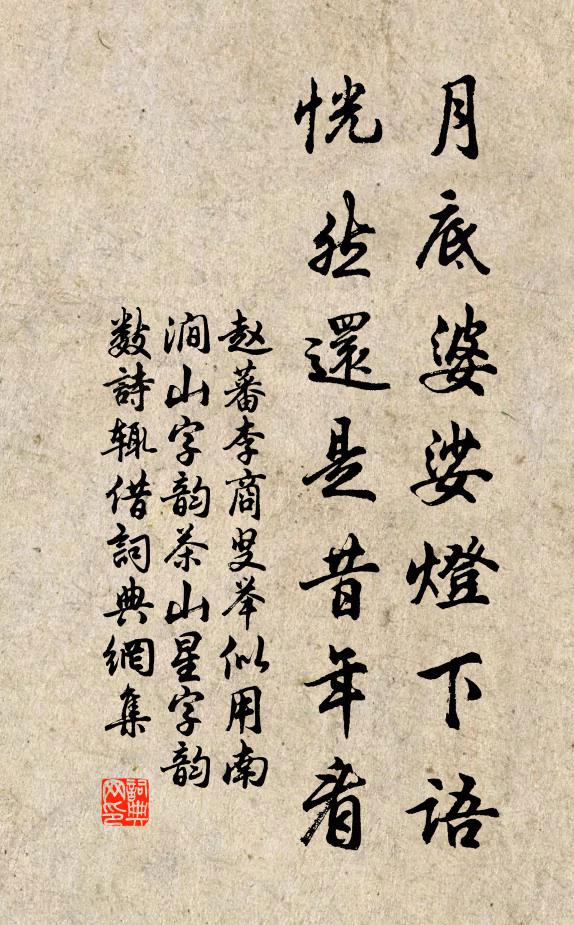 月底婆娑燈下語
恍然還是昔年者
赵蕃李商叟举似用南
澗山字韵茶山星字韵
数詩辄借詞典網集
詞典网印